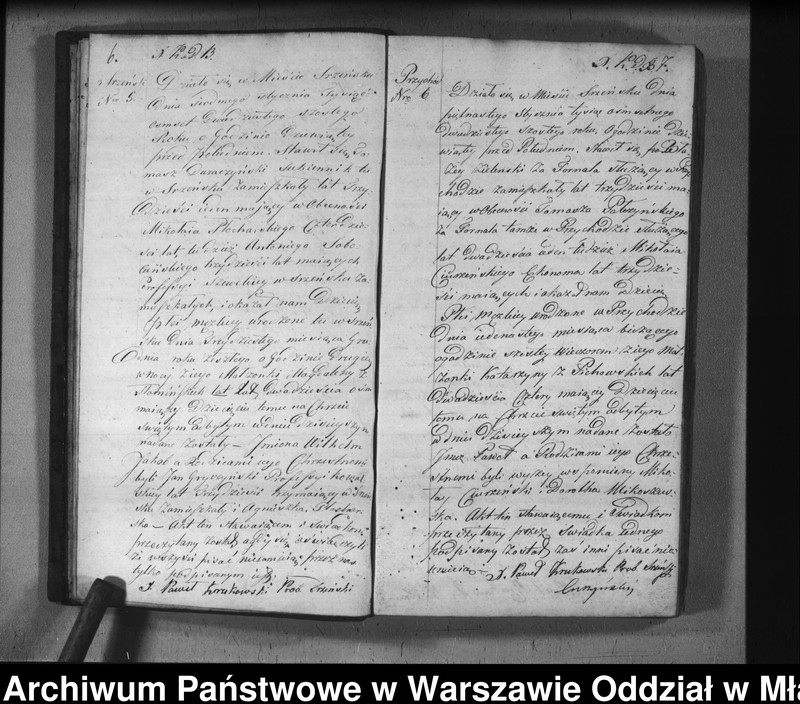 6.
Srzeńsk
Nro 5.
Działo się w Mieście Srzeńsku
Dnia Siodmego stycznia Tysiąc
osmset dwudziestego szostego
Roku o Godzinie Dziewiątey
przed Południem. Stawił się To-
masz Sukiennik tu
w Srzeńsku zamieszkały lat trzy-
dzieści ieden maiący w Obecności
Mikołaia Płocharskiego Czterdzie-
ści lat, tudzież Antoniego Sobo-
lewskiego trzydzieści lat maiących
Professyi Szewckiey w Srzeńsku za-
mieszkałych, i okazał nam Dziecię
płci męzkiey urodzone tu w Srzeń-
sku Dnia Trzydziestego miesiąca Gru-
dnia roku zeszłego o Godzinie Drugiey
w nocy z iego Małżonki Magdaleny z
lat dwadzieścia osm
maiącey Dziecięciu temu na Chrzcie
Swiętym odbytym w dniu dzisieyszym
nadane zostały Imiona Wilhelm
Jakob a Rodzicami iego Chrzestnemi
byli Jan Professyi
lat trzydzieści trzy maiący w Srzeń-
sku zamieszkały i Agnieszka
Akt ten Stawaiącemu i Swiadkom
przeczytany został,
iż wszyscy pisać nieumieią przez nas
tylko podpisanym iest.
X. Paweł Krukowski Prob. Srzeński
7.
Przychód
Nro 6
Działo się w Mieście Srzeńsku dnia
piętnastego Stycznia tysiąc osmsetnego
dwudziestego szostego roku, o godzinie dzie-
wiątey przed Południem, stawił się
Zieliński za Fornala służący w Przy-
chodzie zamieszkały lat trzydzieści ma-
iący w Obecności Tomasza Pałczyńskiego
za Fornala tamże w Przychodzie służącego
lat dwadzieścia ieden tudzież Mikołaia
Ciurzeńskiego Ekonoma lat trzydzie-
ści maiących i okazał nam dziecię
Płci męzkiey urodzone w Przychodzie
dnia iedenastego miesiąca bieżącego
o godzinie szostey wieczorem z iego Mał-
żonki Katarzyny z Pichowskich lat
dwadzieścia cztery maiącey Dziecięciu
temu na Chrzcie świętym odbytym
w dniu dzisieyszym nadane zostało
Imie Paweł a Rodzicami iego Chrze-
stnemi byli wyżey wspomniony Miko-
łay Ciurzeński i Dorotha Mikoszew-
ska. Akt ten stawaiącemu i Swiadkom
przeczytany przez Swiadka iednego
podpisany został, zaś inni pisać nie-
umieią
X. Paweł Krukowski Prob. Srzeński
Archiwum Państwowe w Warszawie Oddział w Mła